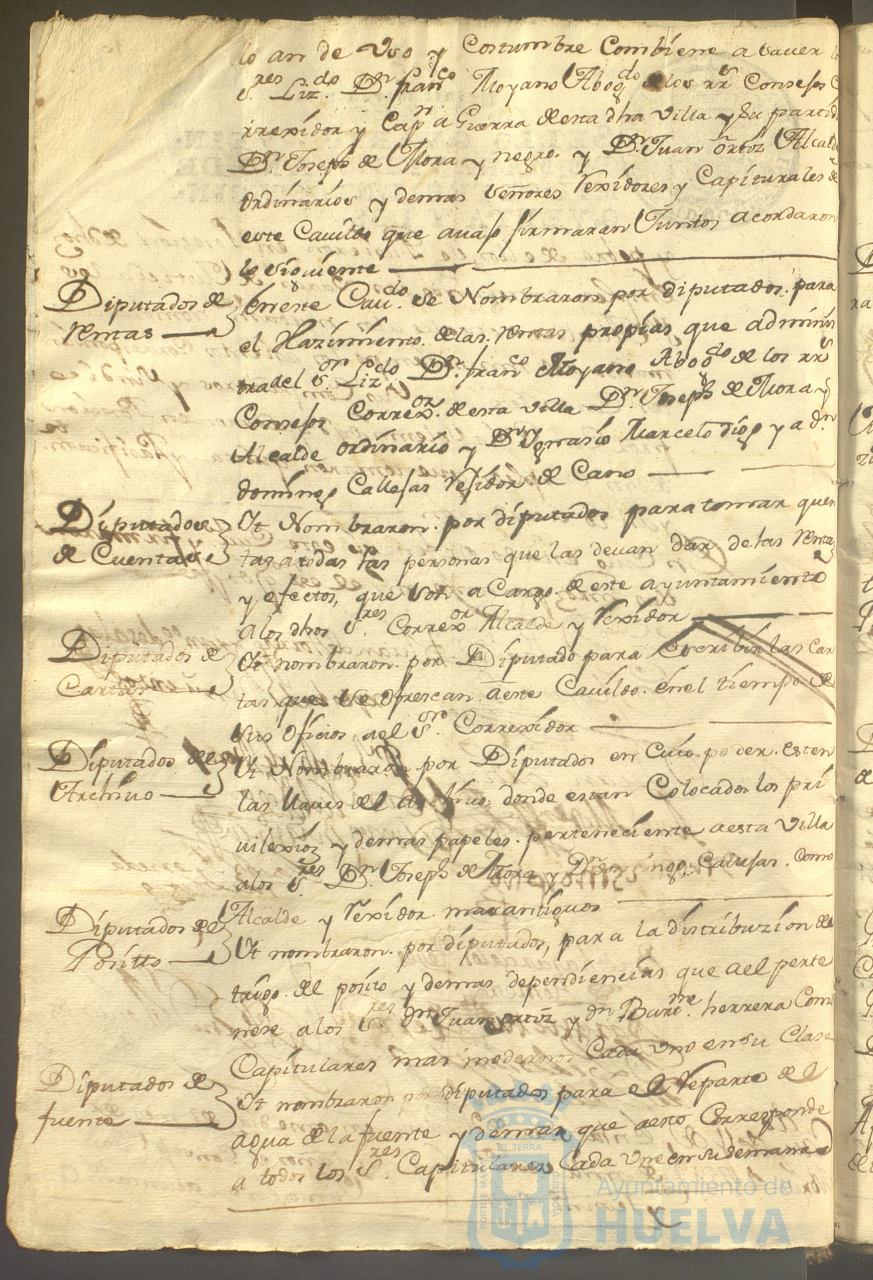 lo an de Uso y Costumbre Combiene a saver
S.res Liz.do D.n fran.co Moyano Abog.do de los R.s Consejos
rrexidor y Cap.n a Guerra de esta dha villa y su partido
D.n Joseph de Mora y negro. y D.n Juan ortiz Alcaldes
Ordinarios y demas Señores Rexidores y Capitulares de
este Cavildo que avajo firmaran Juntos acordaron
lo siguiente
Diputados de
Rentas
En este Cav.do se Nombraron por diputados para
el Hazimiento de las Rentas propias que adminis
tra del S.or Liz.do D.n fran.co Moyano Abog.do de los R.s
Consejos Correx.or de esta villa D.n Joseph de Mora y
Alcalde ordinario y D.n Ygnasio Marcelo y a d.n
domingo Callejas Rexidor de Cano
Diputados
de Cuentas
Yt Nombraron por diputados para tomar quen
tas a todas las personas que las devan dar de las Rentas
y efectos, que son a Cargo de este ayuntamiento
a los dhos S.res Correx.or Alcalde y Rexidor
Diputados de
Cartas
Yt nombraron por Diputado para Escribir las Car
tas que se ofrescan a este Cavildo en el tiempo de
sus oficios a el S.or Correxidor
Diputados de
Archivo
Yt Nombraron por Diputados en Cuio poder esten
las llaves del Archivo donde estan Colocados los pri
vilexios y demas papeles perteneciente a esta villa
a los S.res D.n Joseph de Mora y Domingo Callejas como
Alcalde y Rexidor mas antiguos
Diputados de
Posito
Yt nombraron por diputados, para la distribuzion de
trigo del posito y demas dependiencias que a el perte
nese a los S.res d.n Juan ortiz y d.n Bart.me herrera Como
Capitulares mas modernos Cada uno en su Clase
Diputados de
fuente
Yt nombraron por diputados para el Reparto del
agua de la fuente y demas que a esto Corresponde
a todos los S.res Capitulares Cada uno en su semana
Ayuntamiento de
HUELVA